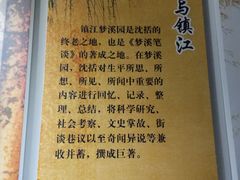 与镇江
镇江梦溪园是沈括的
终老之地，也是《梦溪笔
谈》的著成之地。在梦溪
园，沈括对生平所思、所
想、所见、所闻中重要的
内容进行回忆、记录、整
理、总结，将科学研究、
社会考察、文史掌故、街
谈巷议以至奇闻异说等兼
收并蓄，撰成巨著。